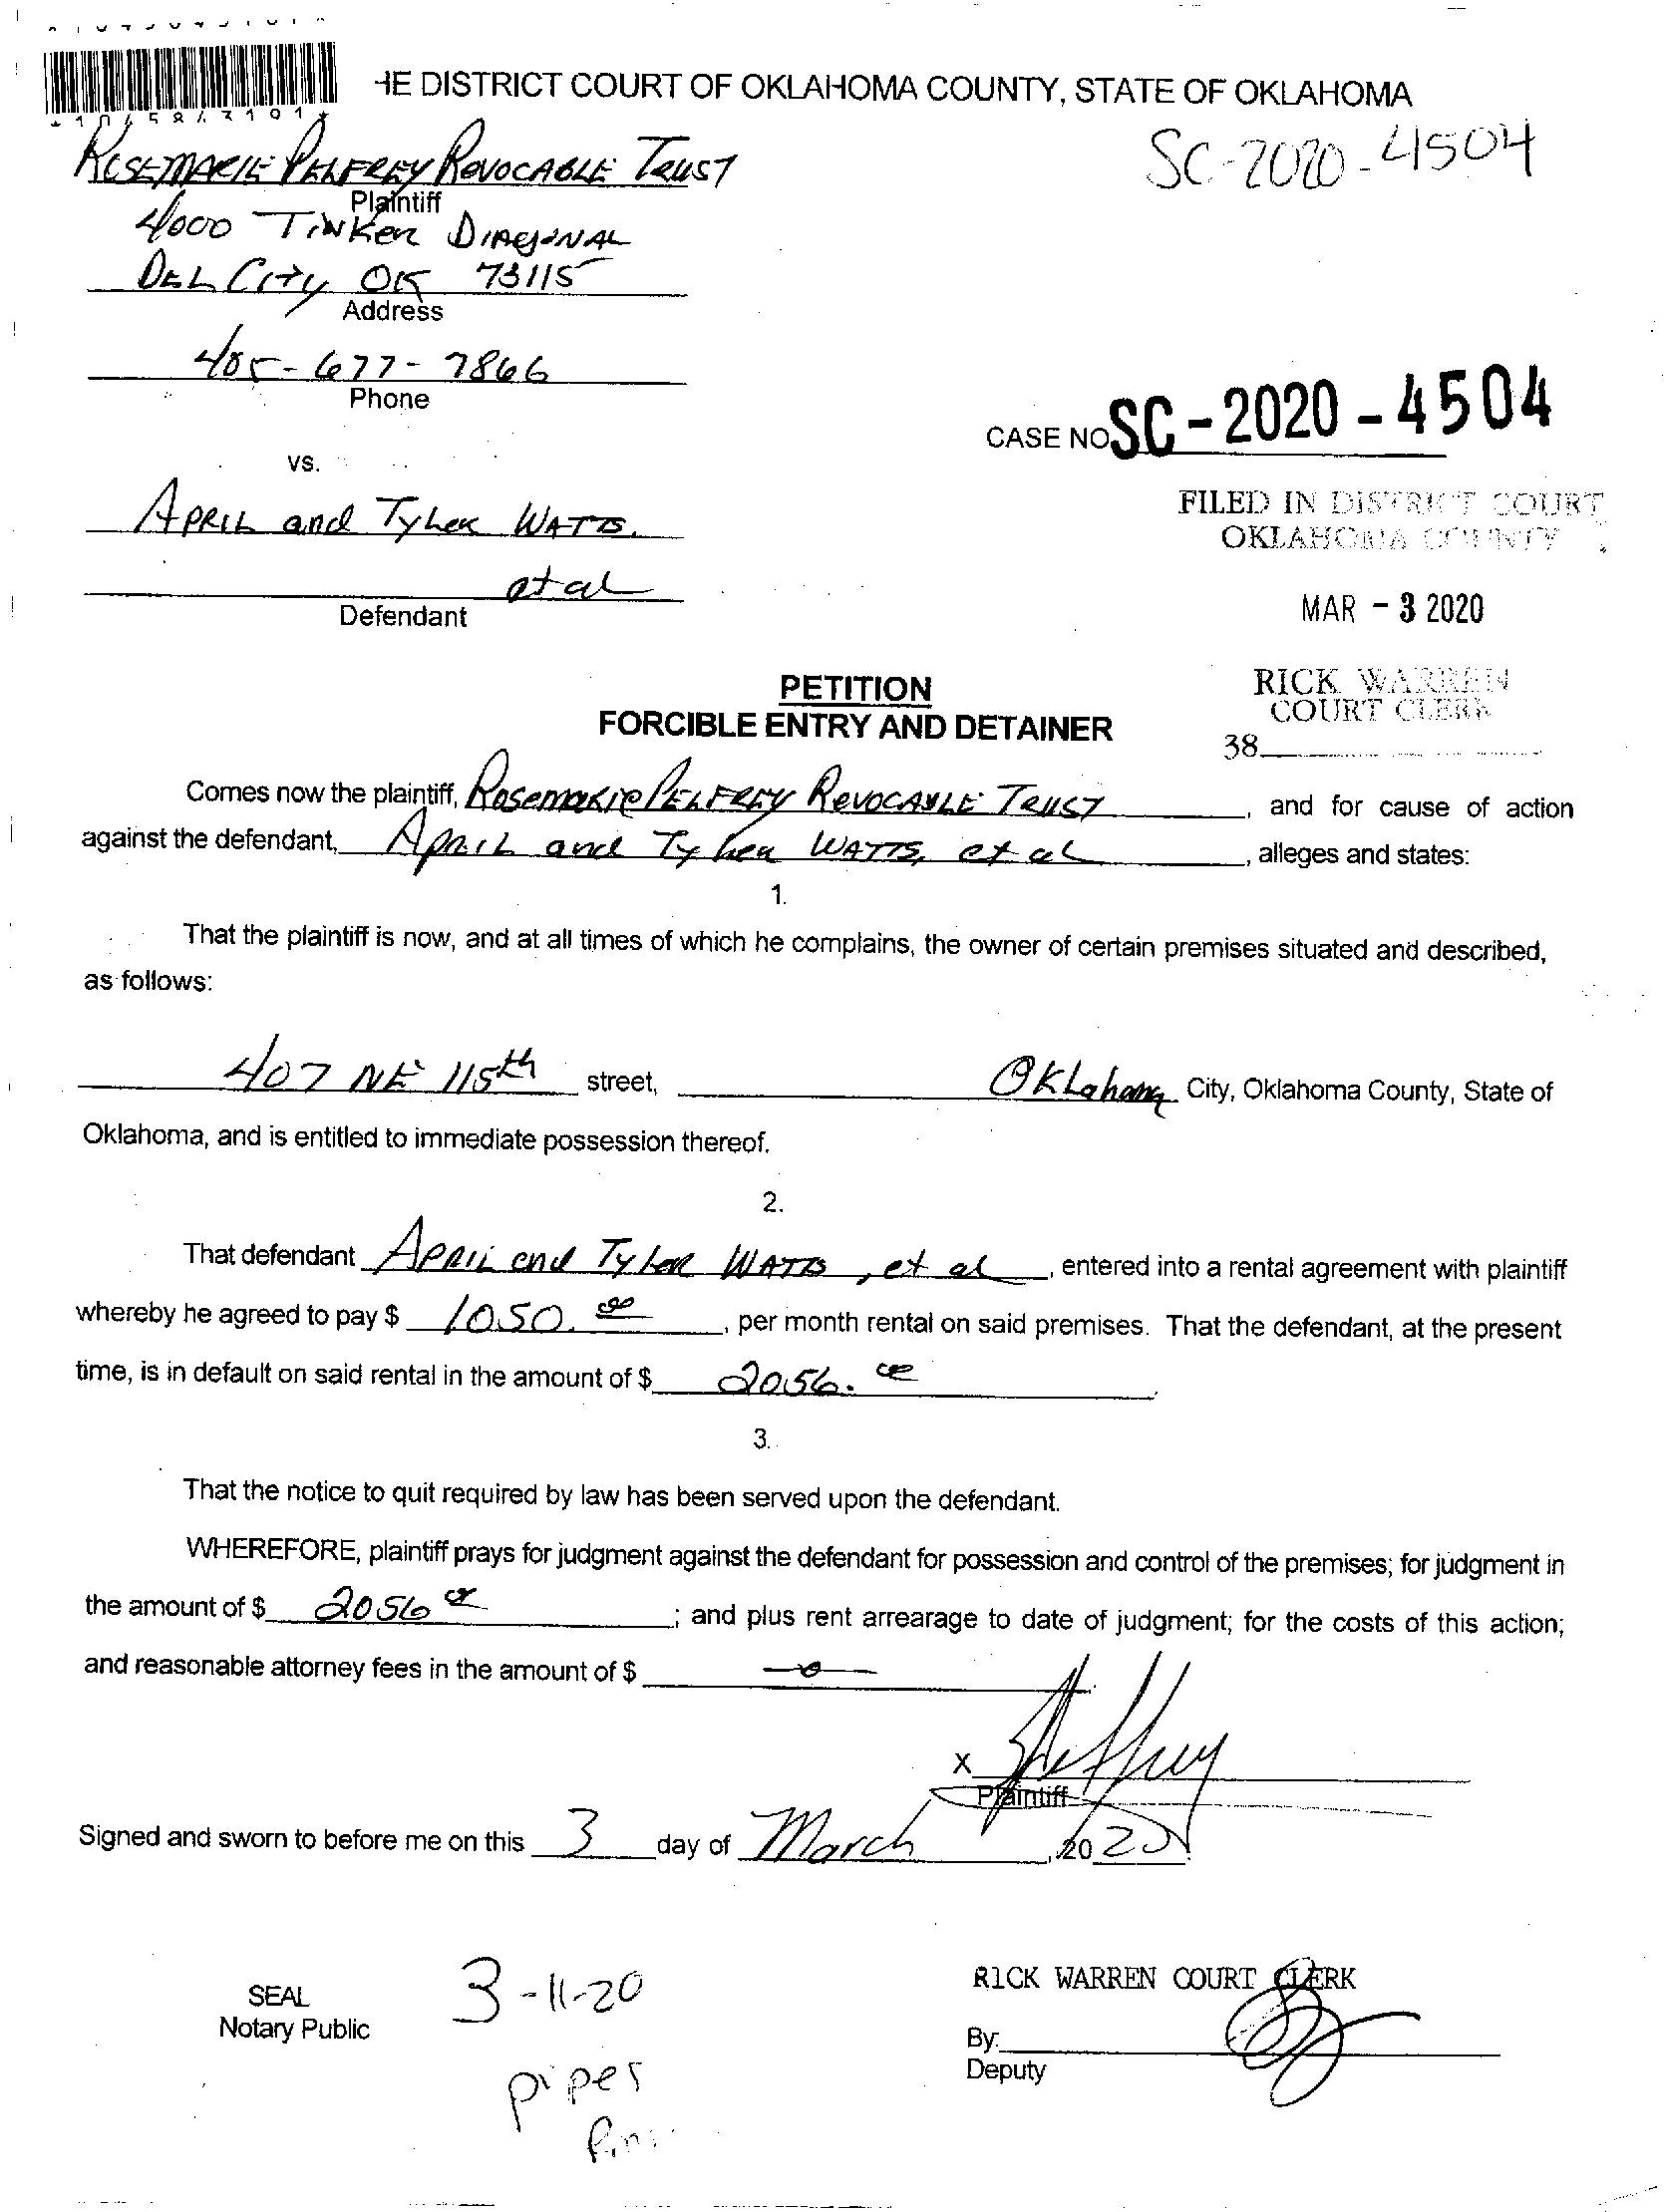 *1045843101*
HE DISTRICT COURT OF OKLAHOMA COUNTY, STATE OF OKLAHOMA
SC-2020-4504
ROSEMARIE PELFREY REVOCABLE TRUST
Plaintiff
4000 TINKER DIAGONAL
DEL CITY OK 73115
Address
405-677-7866
Phone
CASE NO SC-2020-4504
vs.
APRIL and TYLER WATTS,
et al
Defendant
FILED IN DISTRICT COURT
OKLAHOMA COUNTY
MAR - 3 2020
RICK WARREN
COURT CLERK
38
PETITION
FORCIBLE ENTRY AND DETAINER
Comes now the plaintiff, Rosemarie PELFREY REVOCABLE TRUST, and for cause of action
against the defendant, April and Tyler WATTS, et al, alleges and states:
1.
That the plaintiff is now, and at all times of which he complains, the owner of certain premises situated and described,
as follows:
407 NE 115th street, Oklahoma City, Oklahoma County, State of
Oklahoma, and is entitled to immediate possession thereof.
2.
That defendant APRIL and Tyler WATTS, et al, entered into a rental agreement with plaintiff
whereby he agreed to pay $ 1050.00, per month rental on said premises. That the defendant, at the present
time, is in default on said rental in the amount of $ 2056.00.
3.
That the notice to quit required by law has been served upon the defendant.
WHEREFORE, plaintiff prays for judgment against the defendant for possession and control of the premises; for judgment in
the amount of $ 2056 00; and plus rent arrearage to date of judgment; for the costs of this action;
and reasonable attorney fees in the amount of $ -0-
X
Plaintiff
Signed and sworn to before me on this 3 day of March, 2020.
SEAL
Notary Public
3-11-20
piper
RICK WARREN COURT CLERK
By:
Deputy